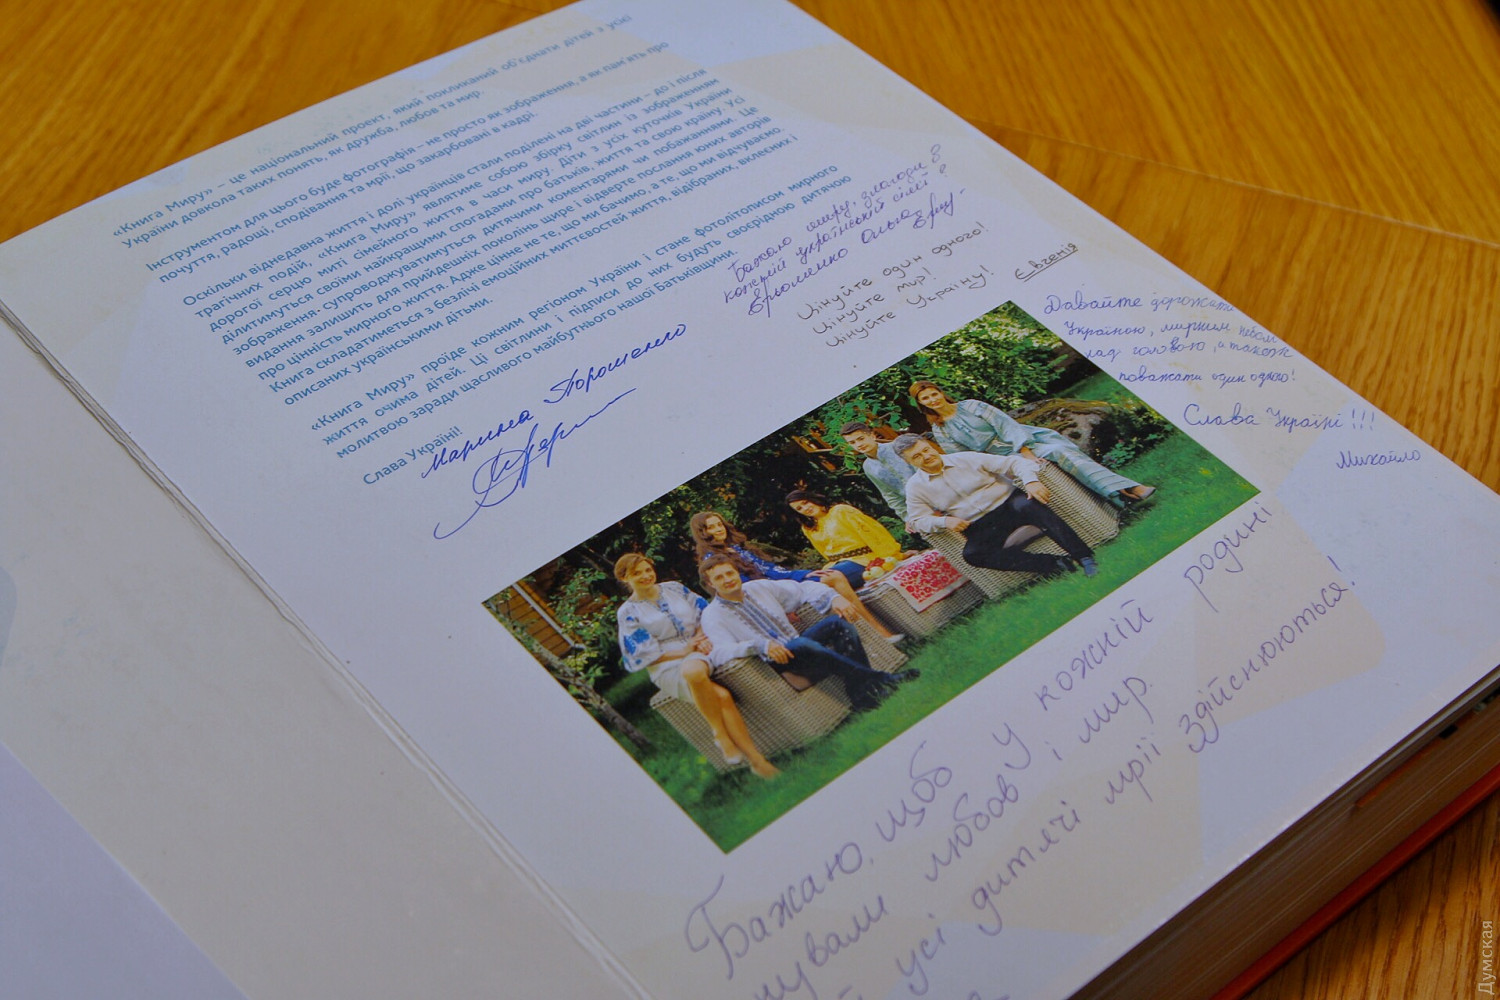 «Книга Миру» – це національний проект, який покликаний об'єднати дітей з усієї
України довкола таких понять, як дружба, любов та мир.
Інструментом для цього буде фотографія – не просто як зображення, а як пам'ять про
почуття, радощі, сподівання та мрії, що закарбовані в кадрі.
Оскільки віднедавна життя і долі українців стали поділені на дві частини – до і після
трагічних подій, «Книга Миру» являтиме собою збірку світлин із зображенням
дорогої серцю миті сімейного життя в часи миру. Діти з усіх куточків України
ділитимуться своїми найкращими спогадами про батьків, життя та свою країну. Усі
зображення- супроводжуватимуться дитячими коментарями чи побажаннями. Це
видання залишить для прийдешніх поколінь щире і відверте послання юних авторів
про цінність мирного життя. Адже цінне не те, що ми бачимо, а те, що ми відчуваємо.
Книга складатиметься з безлічі емоційних миттєвостей життя, відібраних, вклеєних і
описаних українськими дітьми.
«Книга Миру» пройде кожним регіоном України і стане фотолітописом мирного
життя очима дітей. Ці світлини і підписи до них будуть своєрідною дитячою
молитвою заради щасливого майбутнього нашої Батьківщини.
Слава Україні!
Марина Порошенко
Бажаю миру, злагоди в
кожній українській сім'ї
Ольга
Цінуйте один одного!
Цінуйте мир!
Цінуйте Україну!
Євгенія
Давайте дорожити
Україною, мирним небом
над головою, а також
поважати один одного!
Слава Україні!!!
Михайло
Бажаю, щоб у кожній родині
любов і мир.
усі дитячі мрії здійснюються!
Думская